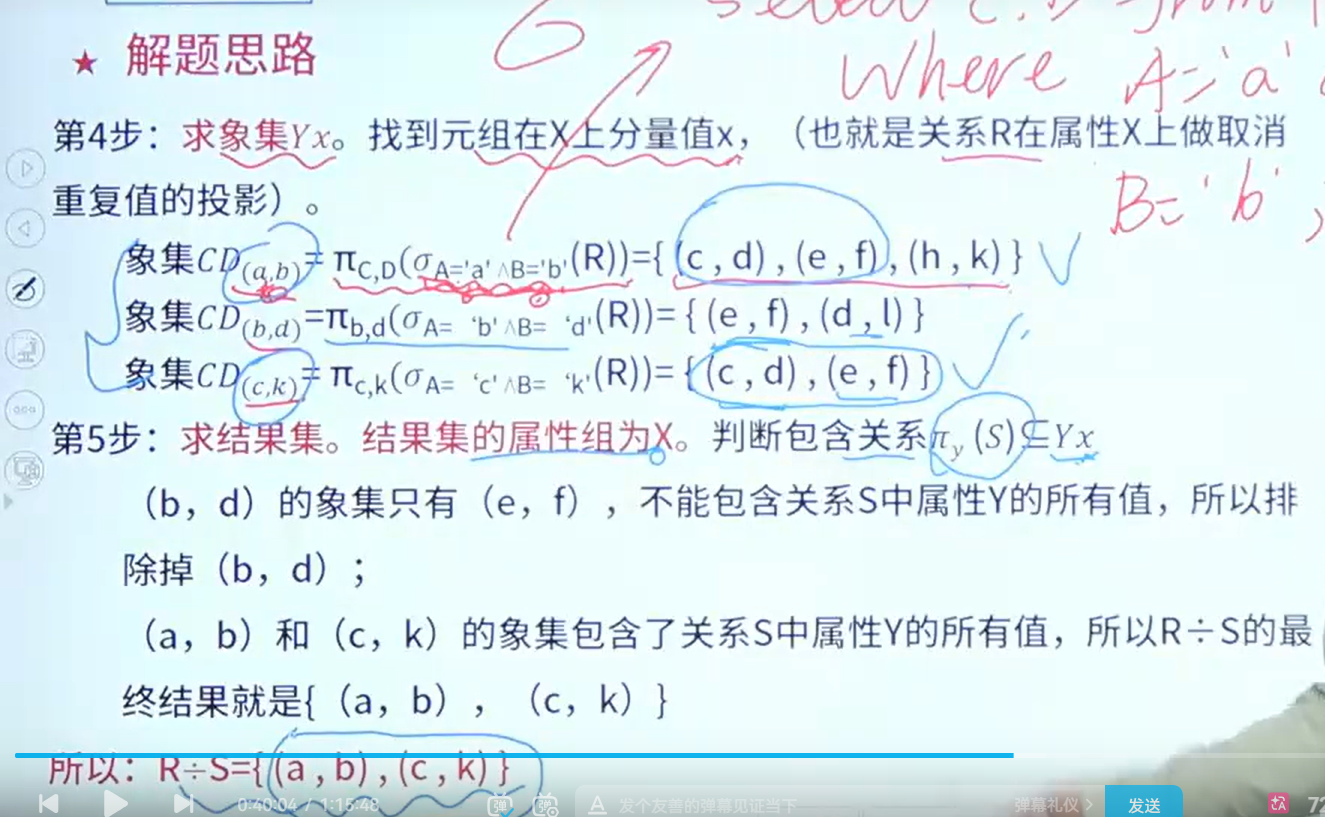 select C.D from
where A='a'
B='b',
★ 解题思路
第4步：求象集Yx。找到元组在X上分量值x，（也就是关系R在属性X上做取消
重复值的投影）。
象集CD(a,b)= πC,D(σA='a' ∧B='b'(R))={ (c , d) , (e , f) , (h , k) }
象集CD(b,d)=πb,d(σA= ‘b' ∧B= ‘d'(R))= { (e , f) , (d , l) }
象集CD(c,k)= πc,k(σA= ‘c' ∧B= ‘k'(R))= { (c , d) , (e , f) }
第5步：求结果集。结果集的属性组为X。判断包含关系πy (S)⊆Yx
（b，d）的象集只有（e，f），不能包含关系S中属性Y的所有值，所以排
除掉（b，d）；
（a，b）和（c，k）的象集包含了关系S中属性Y的所有值，所以R÷S的最
终结果就是{（a，b），（c，k）}
所以：R÷S={ (a , b) , (c , k) }
0:40:04 / 1:15:48 弹 弹 A 发个友善的弹幕见证当下 弹幕礼仪 > 发送 72